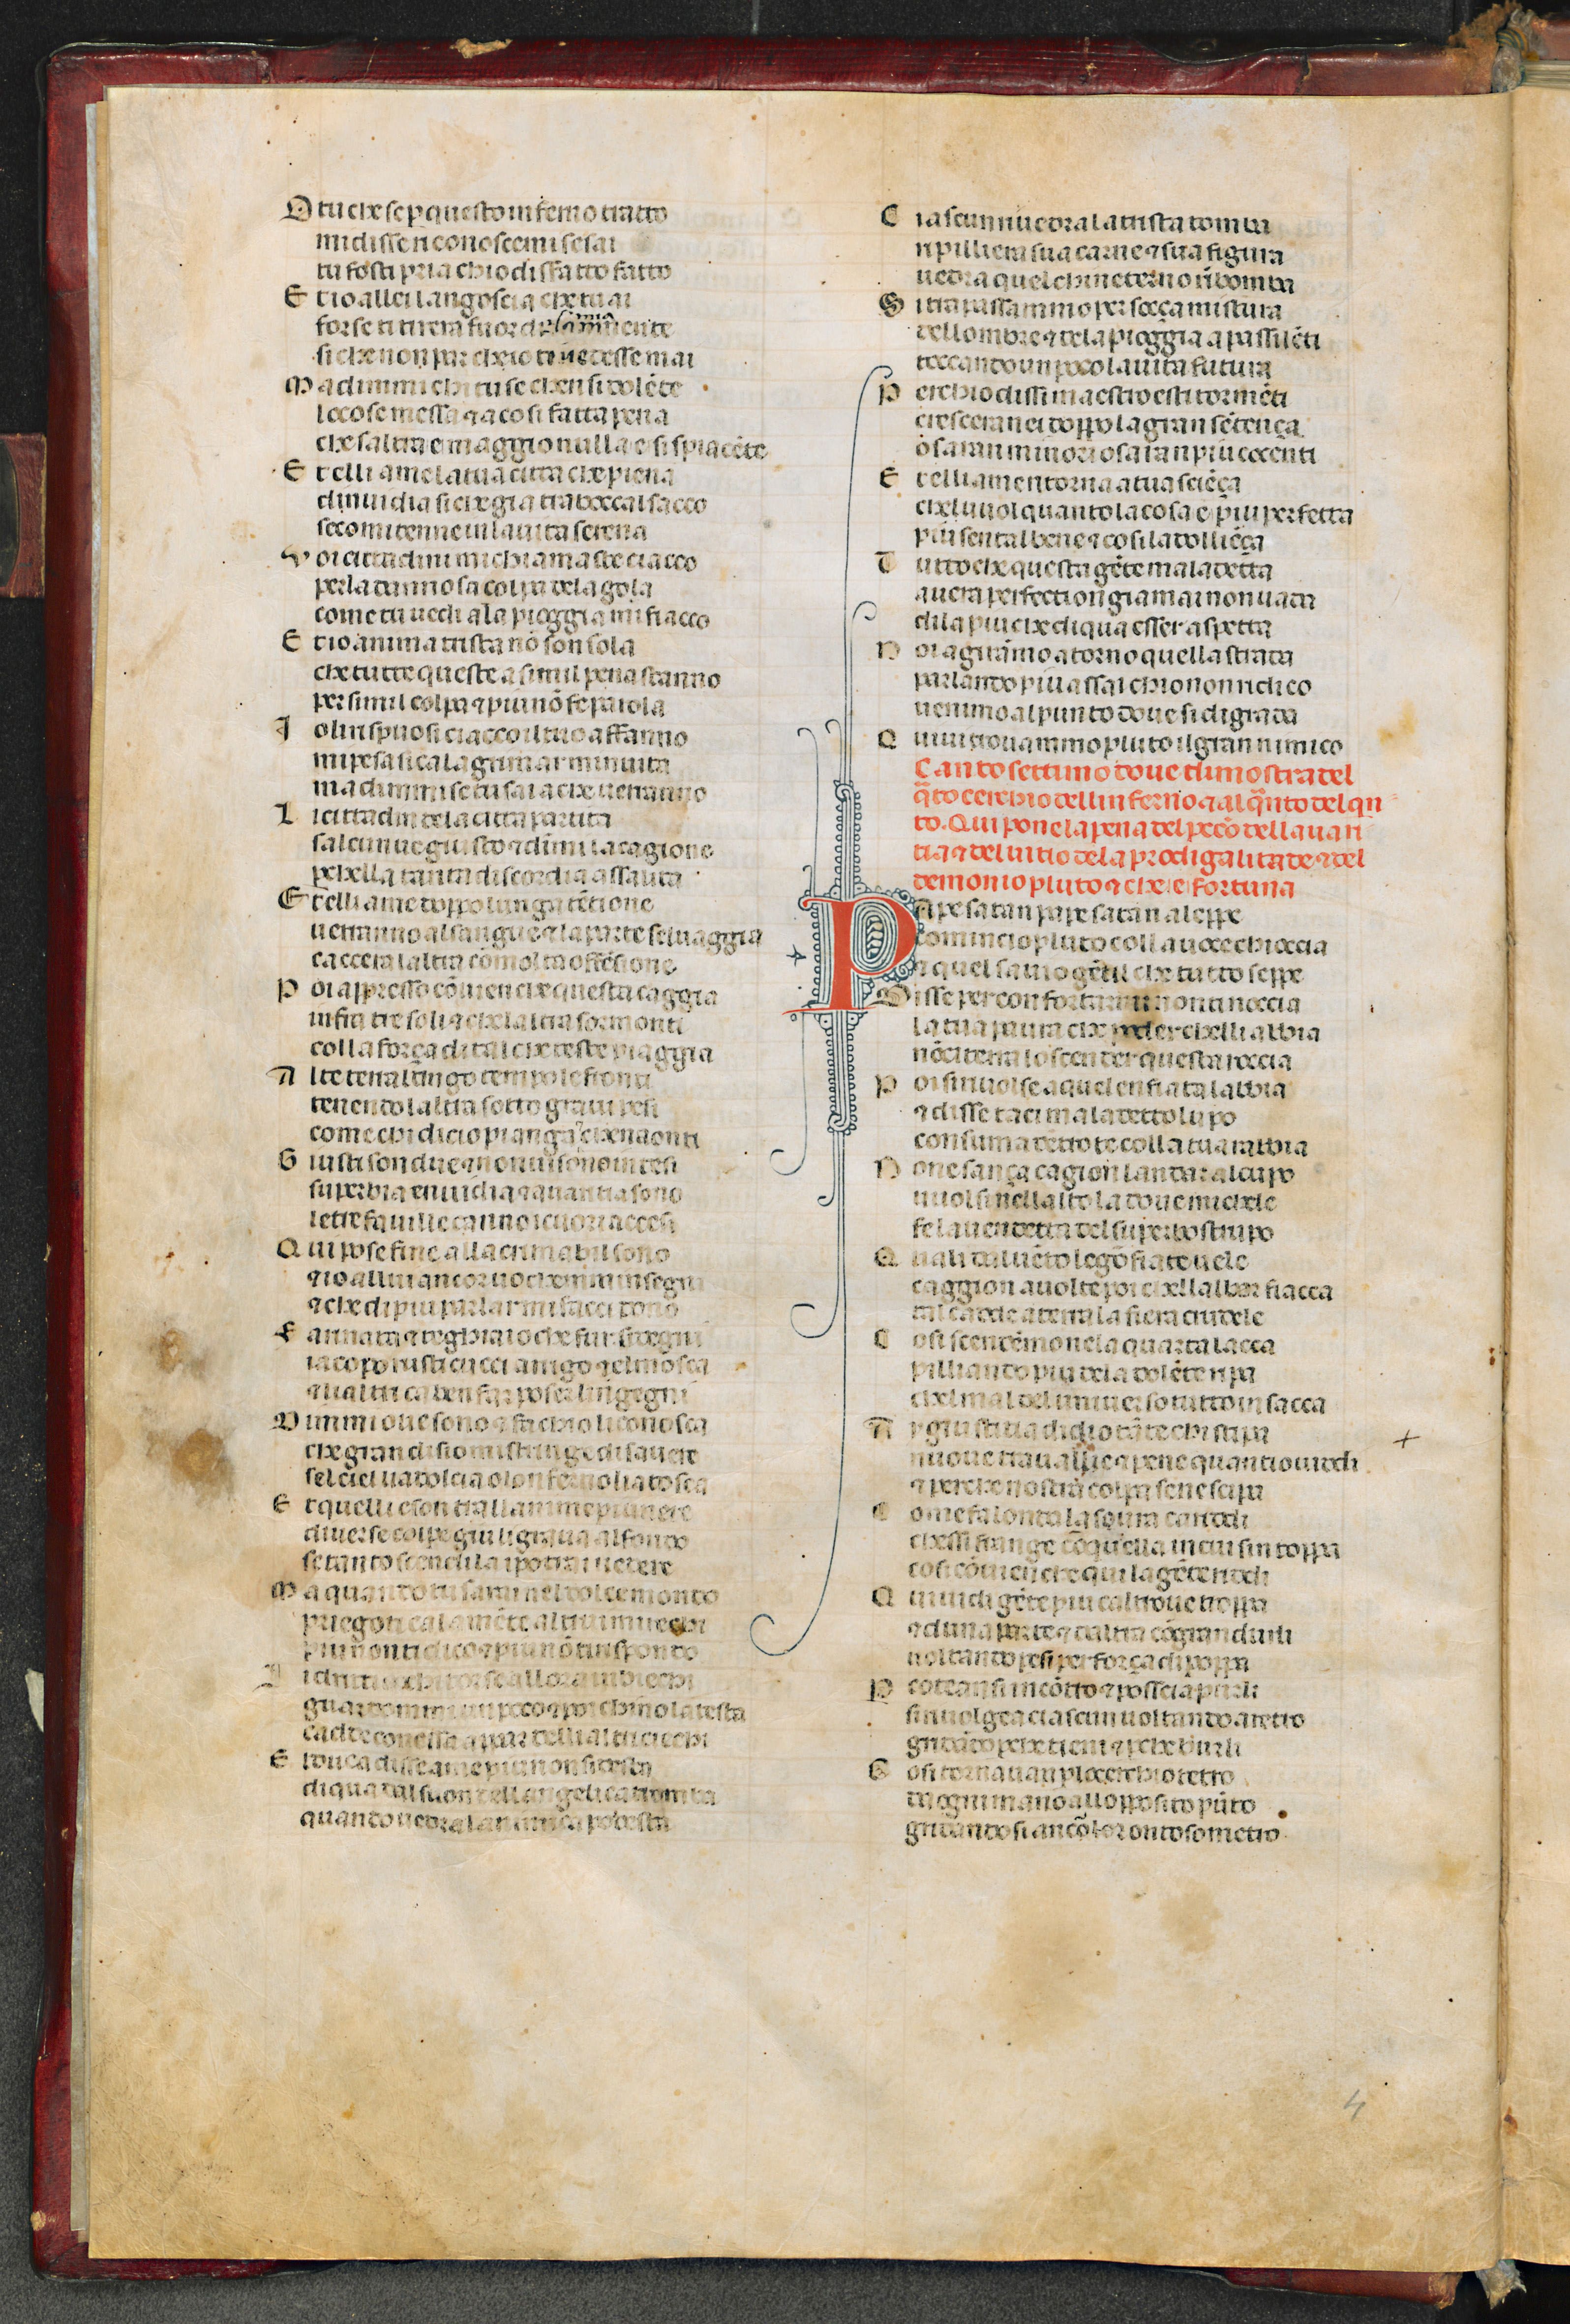 O tu che se p questo inferno tratto
mi disse riconoscemi se sai
tu fosti pria chio disfatto fatto
E tio allei langoscia che tu ai
forse ti tirera fuor de la mia mente
si che non par chio ti uedesse mai
M a dimmi chi tu se chen si dolēte
loco se messa ⁊ a cosi fatta pena
che saltra e maggio nulla e si spiacēte
E delli a me la tua citta che piena
dinuidia si che gia trabocca il sacco
seco mi tenne in la uita serena
V oi cittadini mi chiamaste ciacco
per la dannosa colpa de la gola
come tu uedi a la pioggia mi fiacco
E dio anima trista nō son sola
che tutte queste a simil pena stanno
per simil colpa ⁊ piu nō fe parola
I o li rispuosi ciacco il tuo affanno
mi pesa sica lagrimar minuita
ma dimmi se tu sai a che uerranno
L i cittadin de la citta partita
salcun ue giusto ⁊ dimi la cagione
pchella tanta discordia assalita
E delli a me doppo lunga tētione
uerranno al sangue ⁊ la parte seluaggia
caccera laltra cō molta offēsione
P oi appresso cōuien che questa caggia
infra tre soli ⁊ che laltra sormonti
colla força di tal che teste piaggia
A lte terra lungo tempo le fronti
tenendo laltra sotto graui pesi
come chi di cio pianga ⁊ che naonti
G iusti son due ⁊ non ui sono intesi
superbia enuidia ⁊ auaritia sono
le tre fauille canno i cuori accesi
Q ui pose fine alla crimabil sono
⁊ io allui ancor uo che minsegni
⁊ che di piu parlar mi facci dono
F arinata ⁊ tegghiaio che fur si degni
iacopo rusticucci arrigo ⁊ el mosca
⁊ li altri ca ben far poser lingegni
D immi oue sono ⁊ fa chio li conosca
che gran disio mi stringe di sauere
sel ciel uadolcia o lonferno li atosca
E t quelli e son tra llanime piu nere
diuerse colpe giu li graua al fondo
se tanto scendi la i potrai uedere
M a quando tu sarai nel dolce mondo
priegoti cala mēte altrui mi rechi
piu non ti dico ⁊ piu nō ti rispondo
L i diritti occhi torse allora in biechi
guardommi un poco ⁊ poi chinò la testa
cadde con essa a par delli altri ciechi
E l duca disse a me piu non si desta
di qua dal suon dell angelica tromba
quando uedra la nimica podesta
C iascun riuedra la trista tomba
ripilliera sua carne ⁊ sua figura
udira quel chin eterno rībomba
S i trapassammo per soçça mistura
dell ombre ⁊ de la pioggia a passi lēti
toccando un poco la uita futura
P erchio dissi maestro esti tormēti
cresceranei doppo la gran sētença
o saran minori o saran piu cocenti
E delli a me ritorna a tua sciēça
chel uuol quanto la cosa e piu perfetta
piu senta il bene ⁊ cosi la dolliēça
T utto che questa gēte maladetta
a uera perfection giamai non uada
di la piu che di qua esser aspetta
N oi aggirāmo a torno quella strada
parlando piu assai chio non ridico
uenimo al punto doue si digrada
Q uiui trouammo pluto il gran nimico
Canto settimo doue dimostra del
q̄rto cerchio dell inferno ⁊ alq̄nto del qn
to. Qui pone la pena del pecō dell auari
tia ⁊ del uitio de la prodigalitade ⁊ del
demonio pluto ⁊ che e fortuna
P ape satan pape satan aleppe
comincio pluto colla uoce chioccia
⁊ quel sauio gētil che tutto seppe
D isse per confortarmi non ti noccia
la tua paura che poder chelli abbia
nō ci terra lo scender questa roccia
P oi si riuolse a quel enfiata labbia
⁊ disse taci maladetto lupo
consuma dētro te colla tua rabbia
N one sança cagion landar al cupo
uuolsi nell alto la doue michele
fe la uendetta del superbo strupo
Q uali dal uēto le gōfiate uele
caggion auolte poi chell alber fiacca
tal cadde a terra la fiera crudele
C osi scendēmo ne la quarta lacca
pilliando piu de la dolēte ripa
chel mal del uniuerso tutto in sacca
A y giustitia di dio tāte chi stipa
nuoue trauallie ⁊ pene quantio uiddi
⁊ perche nostra colpa se ne scipa
C ome fa londa la soura cariddi
chessi frange cō quella in cui sintoppa
cosi cōuien che qui la gēte riddi
Q uiui di gēte piu caltroue troppa
⁊ duna parte ⁊ daltra cō grandurli
uoltando pesi per força di poppa
P coteansi incōtro ⁊ poscia pur li
si riuolgea ciascun uoltando a retro
gridādo pche tieni ⁊ pche burli
C osi tornauan p lo cerchio tetro
da ogni mano all opposito pūto
gridandosi ancō loro ontoso metro
4